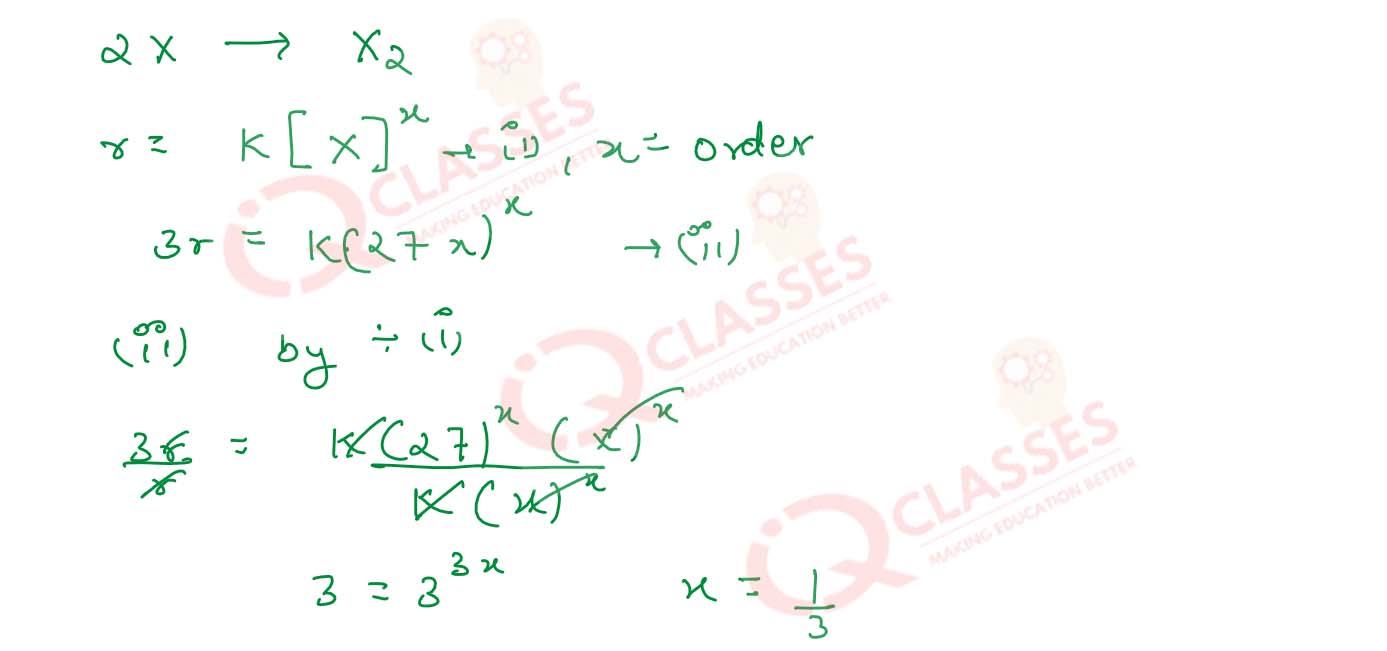 2X ⟶ X₂
r = K[X]^x → (i), x = order
3r = K(27x)^x → (ii)
(ii) by ÷ (i)
3r/r = K(27)^x (x)^x / K(x)^x
3 = 3^3x x = 1/3
iQ CLASSES
MAKING EDUCATION BETTER
iQ CLASSES
MAKING EDUCATION BETTER
iQ CLASSES
MAKING EDUCATION BETTER